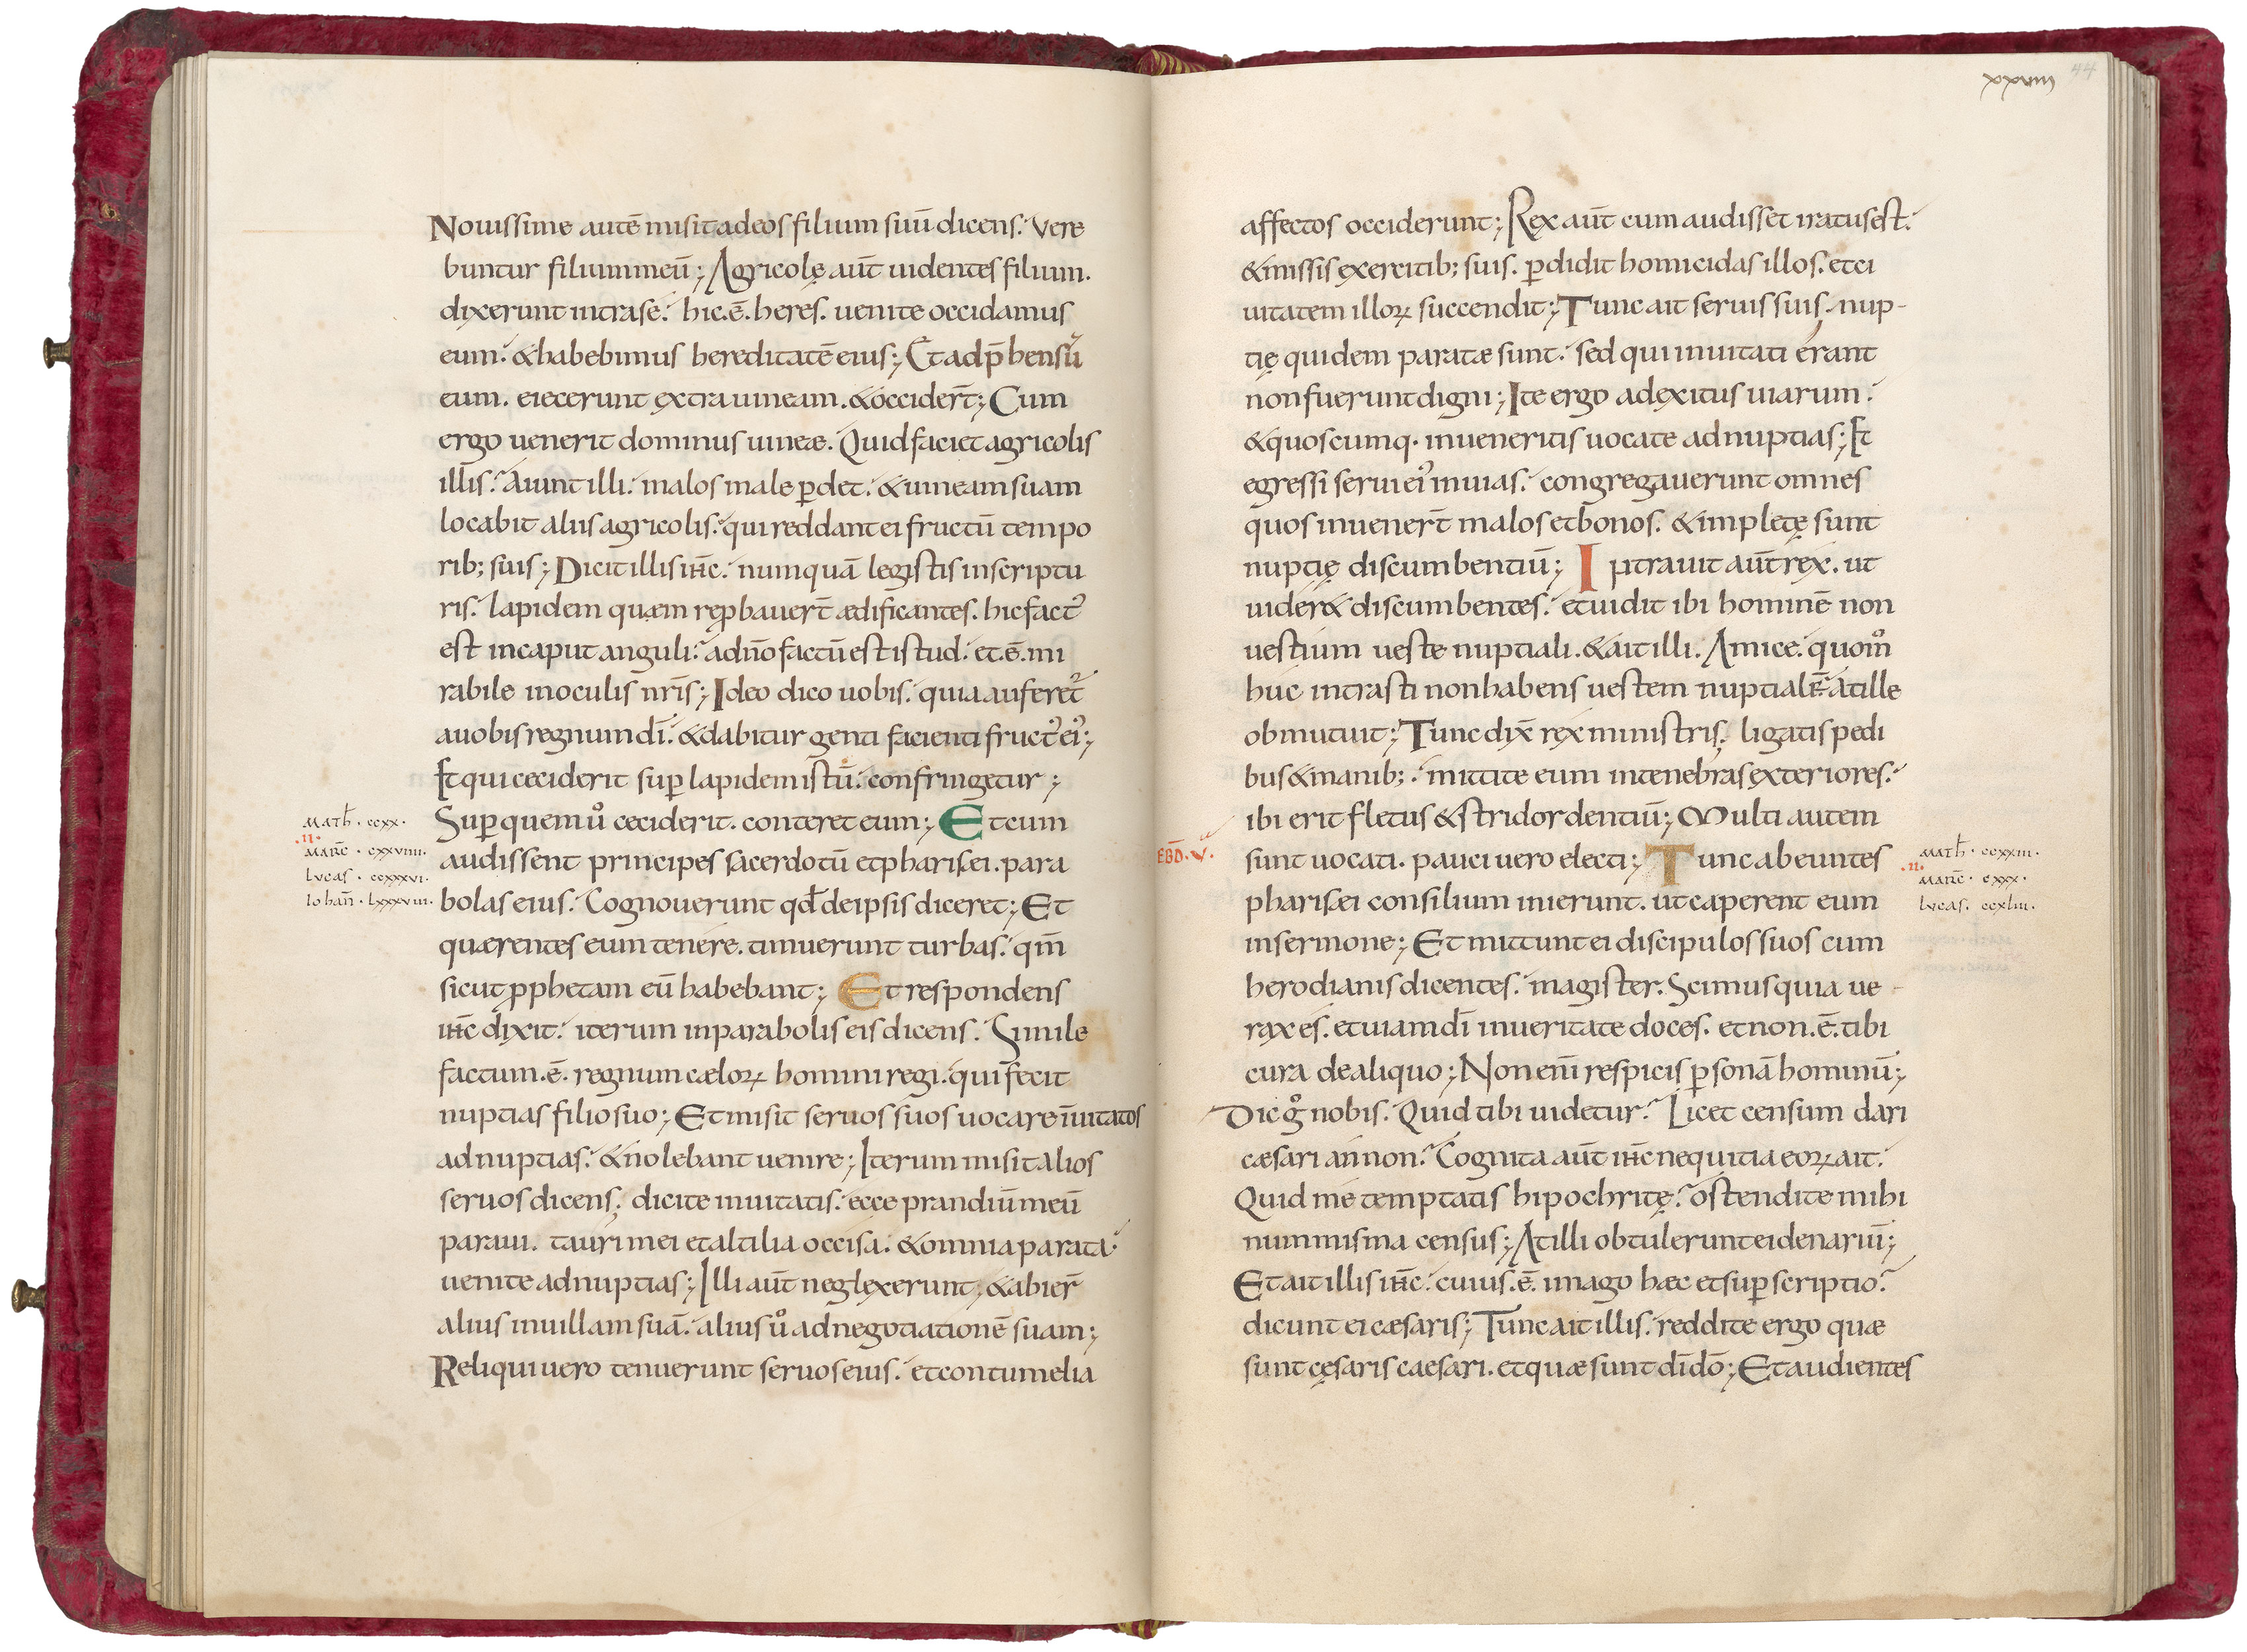 Nouissime autē misit ad eos filium suū dicens. vere
buntur filium meū; Agricolę aūt uidentes filium.
dixerunt intra se. hic .ē. heres. uenite occidamus
eum. & habebimus hereditatē eius; Et adp̄hensū
eum. eiecerunt extra uineam. & occider̄t; Cum
ergo uenerit dominus uineæ. Quid faciet agricolis
illis. Aiunt illi. malos male ꝑdet. & uineam suam
locabit aliis agricolis. qui reddant ei fructū tempo
rib; suis; Dicit illis ih̄c. numquā legistis in scriptu
ris. lapidem quem reꝓbauer̄t ædificantes. hic fact᾿
est in caput anguli. a dn̄o factū est istud. et .ē. mi
rabile in oculis nr̄is; Ideo dico uobis. quia auferet᾿
a uobis regnum dī. & dabitur genti facienti fruct᾿ ei᾿;
Et qui ceciderit suꝑ lapidem istū. confringetur;
math̄ . ccxx.
.II.
marc̄ . cxxviiii.
lucas . ccxxxvi.
iohan̄ . lxxxviii.
Suꝑ quem uͦ ceciderit. conteret eum; Et cum
audissent principes sacerdotū et pharisæi. para
bolas eius. Cognouerunt qd̄ de ipsis diceret; Et
quærentes eum tenere. timuerunt turbas. qm̄
sicut ꝓphetam eū habebant; Et respondens
ih̄c dixit. iterum in parabolis eis dicens. Simile
factum .ē. regnum cælorꝝ homini regi. qui fecit
nuptias filio suo; Et misit seruos suos uocare inuitatos
ad nuptias. & nolebant uenire; Iterum misit alios
seruos dicens; dicite inuitatis. ecce prandiū meū
paraui. tauri mei et altilia occisa. & omnia parata.
uenite ad nuptias; Illi aūt neglexerunt; & abier̄
alius in uillam suā. alius uͦ ad negotiationē suam;
Reliqui uero tenuerunt seruos eius. et contumelia
xxviii 44
affectos occiderunt; Rex aūt cum audisset iratus est.
& missis exercitib; suis. ꝑdidit homicidas illos. et ci
uitatem illorꝝ succendit; Tunc ait seruis suis. nup-
tię quidem paratæ sunt. sed qui inuitati erant
non fuerunt digni; Ite ergo ad exitus uiarum.
& quoscumq. inueneritis uocate ad nuptias; Et
egressi serui ei᾿ in uias. congregauerunt omnes
quos inuener̄t malos et bonos. & impletę sunt
nuptię discumbentiū; Intrauit aūt rex. ut
uider& discumbentes. et uidit ibi hominē non
uestitum ueste nuptiali. & ait illi. Amice. quom̊
huc intrasti non habens uestem nuptialē. At ille
obmutuit; Tunc dix̄ rex ministris. ligatis pedi
bus & manib;. mittite eum in tenebras exteriores.
ibi erit fletus & stridor dentiū; Multi autem
EBD̄ . V.
sunt uocati. pauci uero electi; Tunc abeuntes
math̄ . ccxxiii.
.II.
marc̄ . cxxx.
lucas. ccxliii.
pharisæi consilium inierunt. ut caperent eum
in sermone; Et mittunt ei discipulos suos cum
herodianis dicentes. magister. Scimus quia ue-
rax es. et uiam dī in ueritate doces. et non .ē. tibi
cura de aliquo; Non enī respicis ꝑsonā hominū;
Dic gͦ nobis. Quid tibi uidetur. Licet censum dari
cæsari an non. Cognita aūt ih̄c nequitia eorꝝ ait.
Quid me temptatis hipochritę. ostendite mihi
nummisma census; At illi obtulerunt ei denariū;
Et ait illis ih̄c. cuius .ē. imago hæc et suꝑscriptio.
dicunt ei cæsaris; Tunc ait illis. reddite ergo quæ
sunt cęsaris caesari. et quæ sunt dī dō; Et audientes